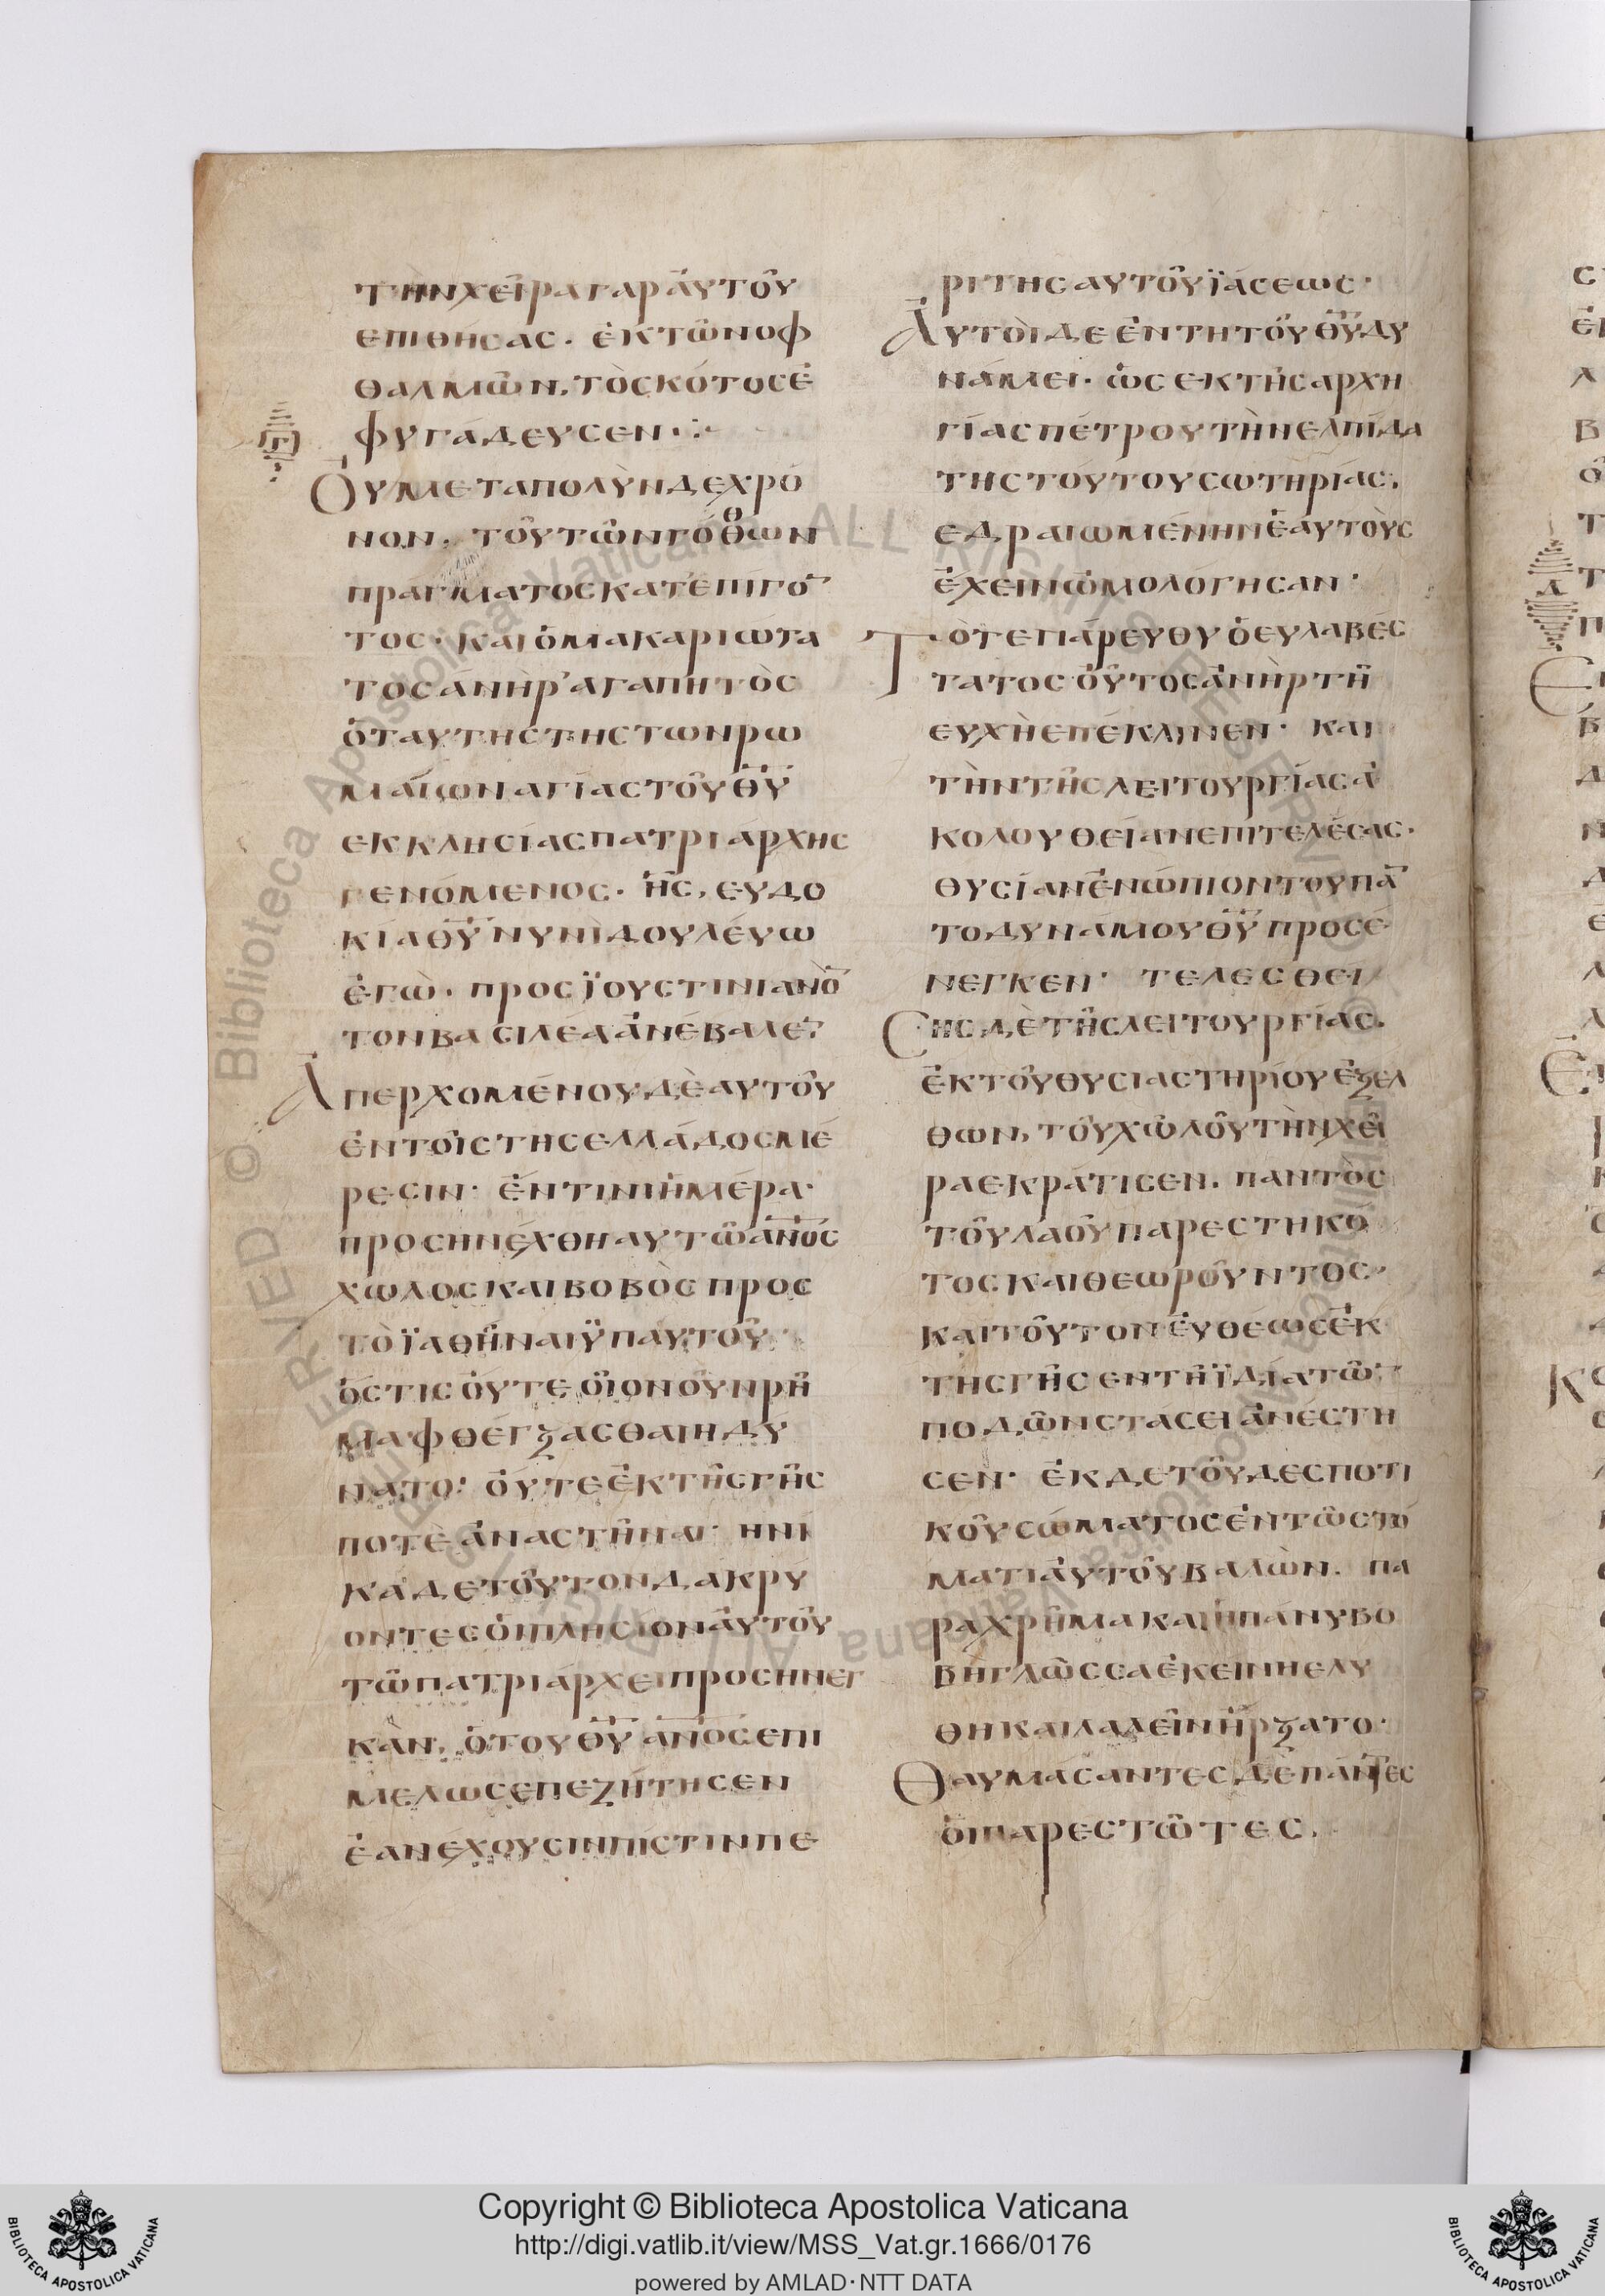 τὴν χεῖρα γὰρ ἀυτοῦ
επιθήσας. ἐκ τῶν οφ
θαλμῶν, τὸ σκότος ἐ
φυγάδευσεν·:·
Γ
Ου μετα πολὺν δε χρό
νον. τοῦ τῶν γότθων
πραγματος κατεπίγο̅
τος· και ὁ μακαριωτα
τος ἀνὴρ ἀγαπητὸς
ὁ ταυτης της των ρω
μαίων αγίας τοῦ θ̅υ̅
εκκλησίας πατριάρχης
γενόμενος. ἧς, ευδο
κία θ̅υ̅ νυνὶ δουλέυω
ἐγὼ. προς ϊουστινιανὸ̅
τον βασιλέα ἀνέβαλε̅·
Απερχομένου δὲ αυτοῦ
ἐν τοῖς της ελλάδος μέ
ρεσιν· ἐν τινι ἡμέρα·
προσηνέχθη αυτῶ α̅ν̅ο̅ς̅
χωλος και βοβὸς προς
τὸ ϊαθῆναι ϋπ αυτοῦ·
ὅστις ὄυτε οἷον οὖν ρῆ
μα φθέγξασθαι ηδύ
νατο· ὄυτε ἐκ της γῆς
ποτὲ ἀναστῆναι· ηνί
κα δε τοῦτον δακρύ
οντες ὁι πλησιον ἀυτοῦ
τῶ πατριάρχει προσηνεγ
κὰν, ὁ του θ̅υ̅ α̅ν̅ο̅ς̅ επι
μελως επεζήτησεν
ἐαν έχουσιν πίστιν πε
ρι της αυτοῦ ϊάσεως·
Αυτοὶ δε ἐν τη τοῦ θ̅υ̅ δυ
νάμει· ὡς εκ της αρχη
γίας πέτρου τὴν ελπίδα
της τούτου σωτηρίας,
εδραιωμένην ἑαυτοὺς
ἔχειν ὡμολόγησαν·
Τότε πάρευθυ ὁ ευλαβέσ
τατος οὗτος ἀνὴρ τῆ
ευχὴ επέκλινεν· και
τὴν τῆς λειτουργίας ἀ
κολουθείαν επιτελέσας·
θυσίαν ἐνώπιον του πα̅
τοδυνάμου θ̅υ̅ προσέ
νεγκεν· τελεσθεί
Σης δὲ τῆς λειτουργίας.
ἐκ τοῦ θυσιαστηρίου ἐξελ
θων, τοῦ χωλοῦ τὴν χεῖ
ρα εκράτισεν. παντὸς
τοῦ λαοῦ παρεστηκό
τος και θεωροῦντος·
και τοῦτον ἐυθέως ἐκ
της γῆς εν τῆ ϊδία τῶ̅
ποδῶν στασει ἀνέστη
σεν· ἐκ δε τοῦ δεσποτι
κοῦ σώματος ἐν τῶ στό
ματι ἀυτοῦ βαλὼν. πα
ραχρῆμα και ἡ πάνυ βο
βὴ γλῶσσα ἐκεινη ελυ
θη και λαλεῖν ἤρξατο·
Θαυμάσαντες δὲ πάντες
ὁι παρεστῶτες.
Copyright © Biblioteca Apostolica Vaticana
http://digi.vatlib.it/view/MSS_Vat.gr.1666/0176
powered by AMLAD·NTT DATA
BIBLIOTECA APOSTOLICA VATICANA
BIBLIOTECA APOSTOLICA VATICANA